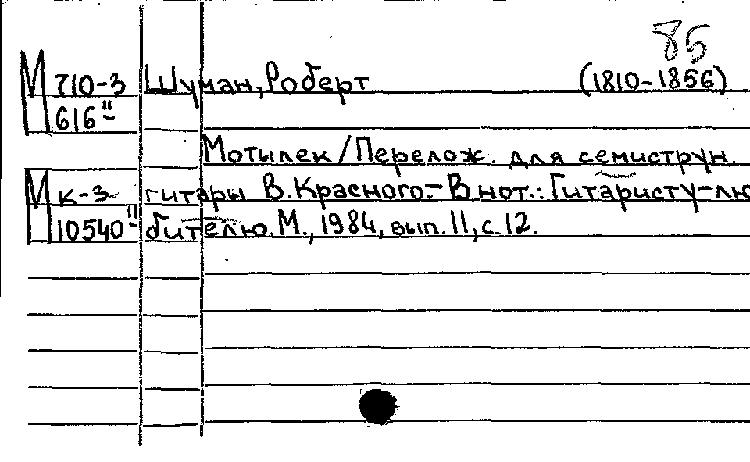 85
М 710-3 Шуман, Роберт (1810-1856)
616
Мотылек/Перелож. для семиструн.
М к-3 гитары В.Красного.- В нот.: Гитаристу-лю
10540 бителю. М., 1984, вып. 11, с. 12.